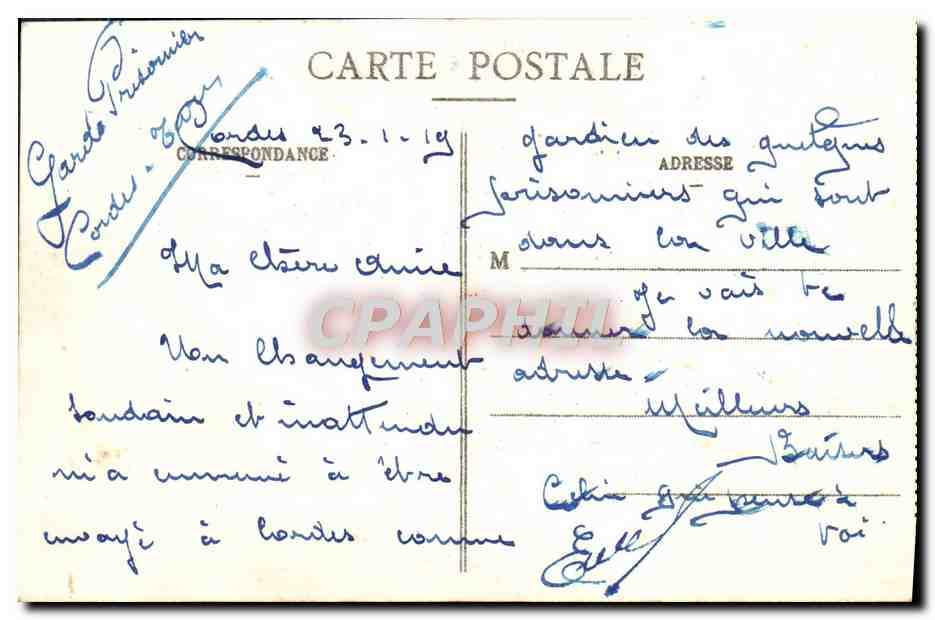 CARTE POSTALE
Garde Prisonnier
Cordes - Tarn
Cordes 23-1-19
CORRESPONDANCE
Ma Chère Amie
Un Changement
soudain et inattendu
m'a emmené à être
envoyé à Cordes comme
ADRESSE
gardien des quelques
prisonniers qui sont
dans la ville
M
Je vais te
donner la nouvelle
adresse.
Meilleurs
Baisers
Celui qui pense à
toi
CPAPHIL